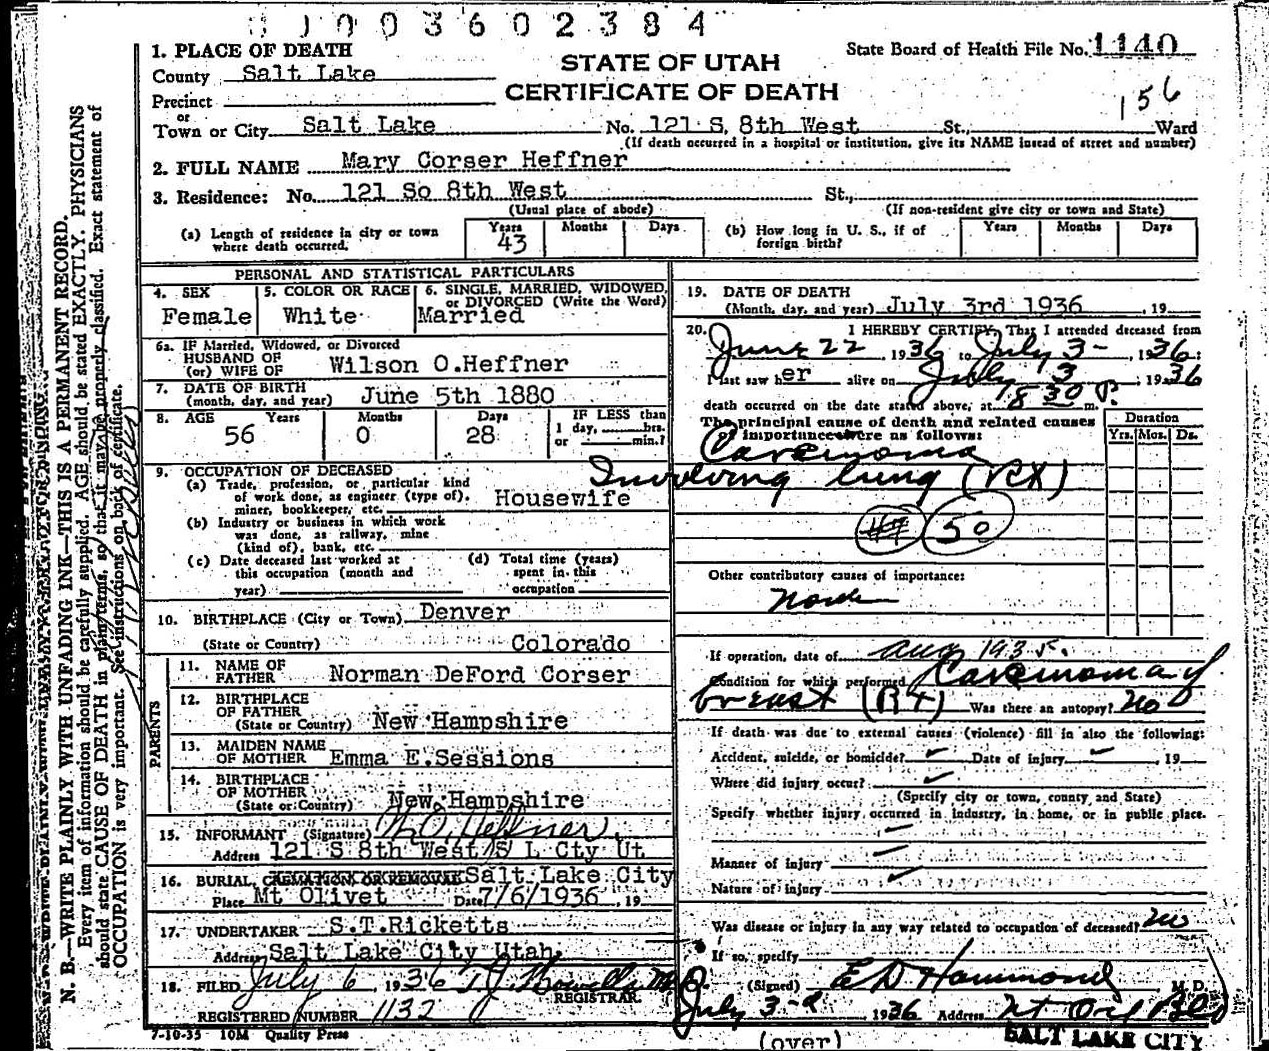 0 1 0 0 3 6 0 2 3 8 4
State Board of Health File No. 1140
STATE OF UTAH
CERTIFICATE OF DEATH
156
1. PLACE OF DEATH
County Salt Lake
Precinct
or
Town or City Salt Lake No. 121 S. 8th West St., Ward
(If death occurred in a hospital or institution, give its NAME instead of street and number)
2. FULL NAME Mary Corser Heffner
3. Residence: No. 121 So 8th West St.,
(Usual place of abode) (If non-resident give city or town and State)
(a) Length of residence in city or town where death occurred. Years 43 Months Days
(b) How long in U. S., if of foreign birth? Years Months Days
PERSONAL AND STATISTICAL PARTICULARS
4. SEX Female
5. COLOR OR RACE White
6. SINGLE, MARRIED, WIDOWED, or DIVORCED (Write the Word) Married
6a. IF Married, Widowed, or Divorced
HUSBAND OF
(or) WIFE OF Wilson O.Heffner
7. DATE OF BIRTH
(month, day, and year) June 5th 1880
8. AGE Years 56 Months 0 Days 28 IF LESS than 1 day, hrs. or min.?
9. OCCUPATION OF DECEASED
(a) Trade, profession, or particular kind of work done, as engineer (type of), miner, bookkeeper, etc. Housewife
(b) Industry or business in which work was done, as railway, mine (kind of), bank, etc.
(c) Date deceased last worked at this occupation (month and year)
(d) Total time (years) spent in this occupation
10. BIRTHPLACE (City or Town) Denver
(State or Country) Colorado
PARENTS
11. NAME OF FATHER Norman DeFord Corser
12. BIRTHPLACE OF FATHER
(State or Country) New Hampshire
13. MAIDEN NAME OF MOTHER Emma E.Sessions
14. BIRTHPLACE OF MOTHER
(State or Country) New Hampshire
15. INFORMANT (Signature) W.O. Heffner
Address 121 S 8th West S L Cty Ut
16. BURIAL, CREMATION OR REMOVAL Salt Lake City
Place Mt Olivet Date 7/6/1936 , 19
17. UNDERTAKER S.T.Ricketts
Address Salt Lake City Utah
18. FILED July 6 1936 T.J. Howells M.D.
REGISTRAR
REGISTERED NUMBER 1132
7-10-35 10M Quality Press
19. DATE OF DEATH
(Month, day, and year) July 3rd 1936 , 19
20. I HEREBY CERTIFY, That I attended deceased from
June 22, 1936 to July 3-, 1936:
I last saw her alive on July 3, 1936
death occurred on the date stated above, at 8 30 P. m.
The principal cause of death and related causes of importance were as follows:
Duration
Yrs. Mos. Ds.
Carcinoma
Involving lung (Rt)
50
Other contributory causes of importance:
None
If operation, date of Aug 1935.
Condition for which performed Carcinoma of
breast (Rt) Was there an autopsy? No
If death was due to external causes (violence) fill in also the following:
Accident, suicide, or homicide? Date of injury , 19
Where did injury occur?
(Specify city or town, county and State)
Specify whether injury occurred in industry, in home, or in public place.
Manner of injury
Nature of injury
Was disease or injury in any way related to occupation of deceased? No
If so, specify
(Signed) E D Hammond M. D.
July 3rd 1936 Address
SALT LAKE CITY
(over)
N. B.—WRITE PLAINLY WITH UNFADING INK—THIS IS A PERMANENT RECORD.
Every item of information should be carefully supplied. AGE should be stated EXACTLY. PHYSICIANS
should state CAUSE OF DEATH in plain terms, so that it may be properly classified. Exact statement of
OCCUPATION is very important. See instructions on back of certificate.